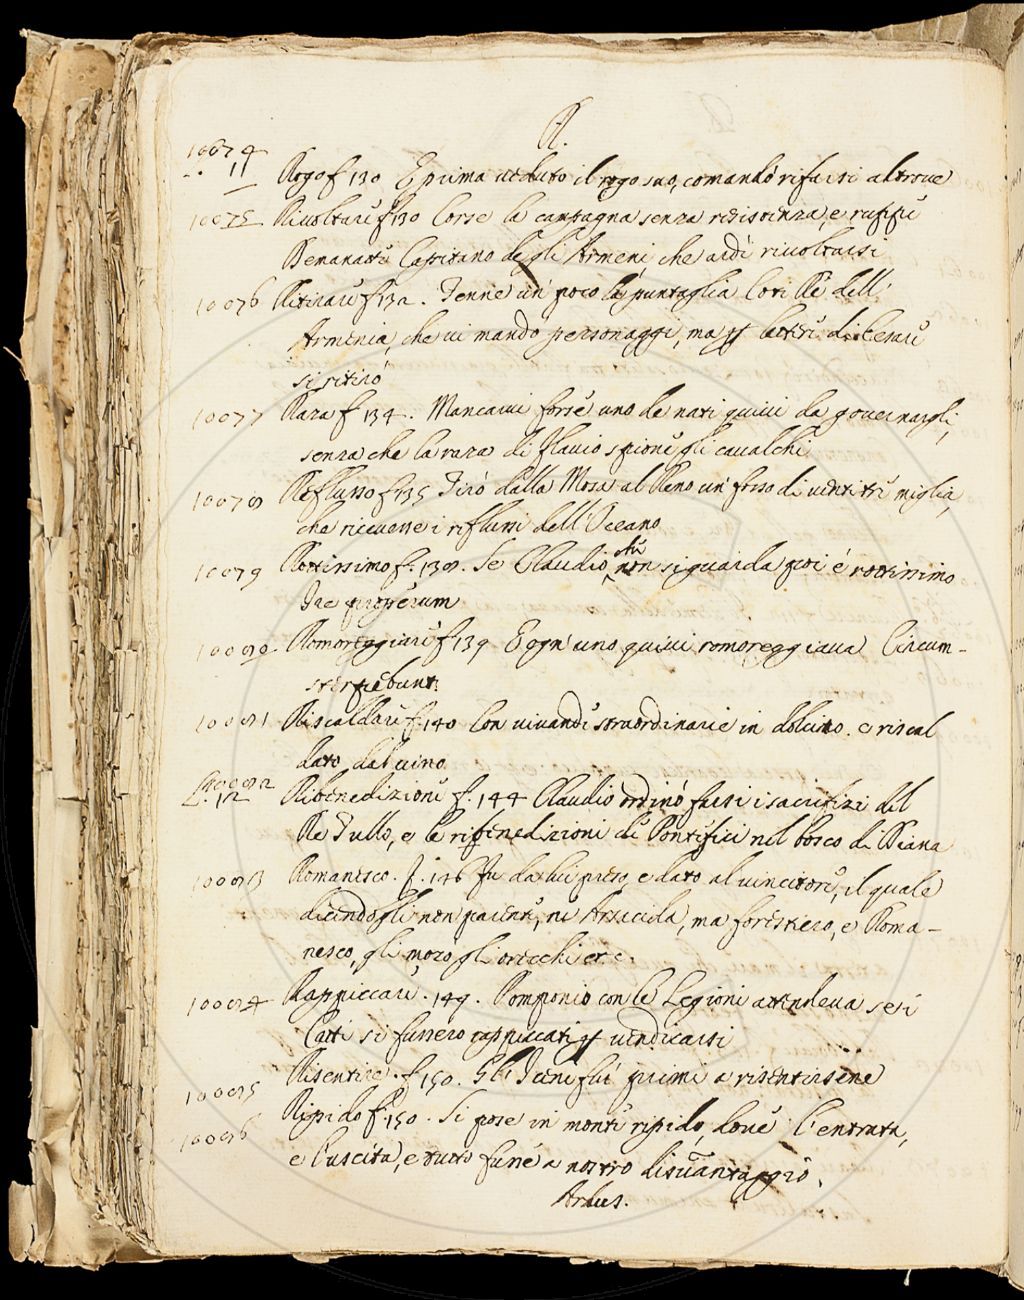 R.
10074
L. 11
Rogo f 130 E prima veduto il rogo suo, comandò rifarsi altrove
10075 Rivoltare f 130 Corse la campagna senza resistenza, e
Capitano degli Armeni, che ardì rivoltarsi
10076 Ritirare f 132. Tenne un poco la puntaglia Coti Rè dell'
Armenia, che vi mandò personaggi, ma lettere di
si ritirò
10077 Raza f 134. Mancarvi forse uno de nati quivi da governargli,
senza che la raza di Flavio spione gli cavalchi
10078 Reflusso f 135 Tirò dalla Mosa al Reno un fosso di ventitre miglia,
che ricevesse i riflussi dell'Oceano
10079 Rottissimo f. 138. Se Claudio non si guarda poi è rottissimo
10080 Romoreggiare f 139 E ogn'uno quivi romoreggiava Circum-
strepebunt
10081 Riscaldare f. 140 Con vivande straordinarie in e riscal
dato dal vino
10082
L. 12
Ribenedizione f. 144 Claudio ordinò farsi i sacrifizi del
Re Tullo, e le ribenedizioni de Pontefici nel bosco di Diana
10083 Romanesco. f. 146 Fu da lui preso e dato al vincitore, il quale
dicendogli non parente, ne Arsacida, ma forestiero, e Roma-
nesco, gli mozò gli orecchi etc.
10084 Rappiccare. 149. Pomponio con le Legioni attendeva se i
Catti si fussero rappiccati vendicarsi
10085 Risentire. f 150. Gl'Iceni primi a risentirsene
10086 Ripido f. 150. Si pose in monte ripido, dove l'entrata,
e l'uscita, e tutto fusse a nostro disvantaggio.